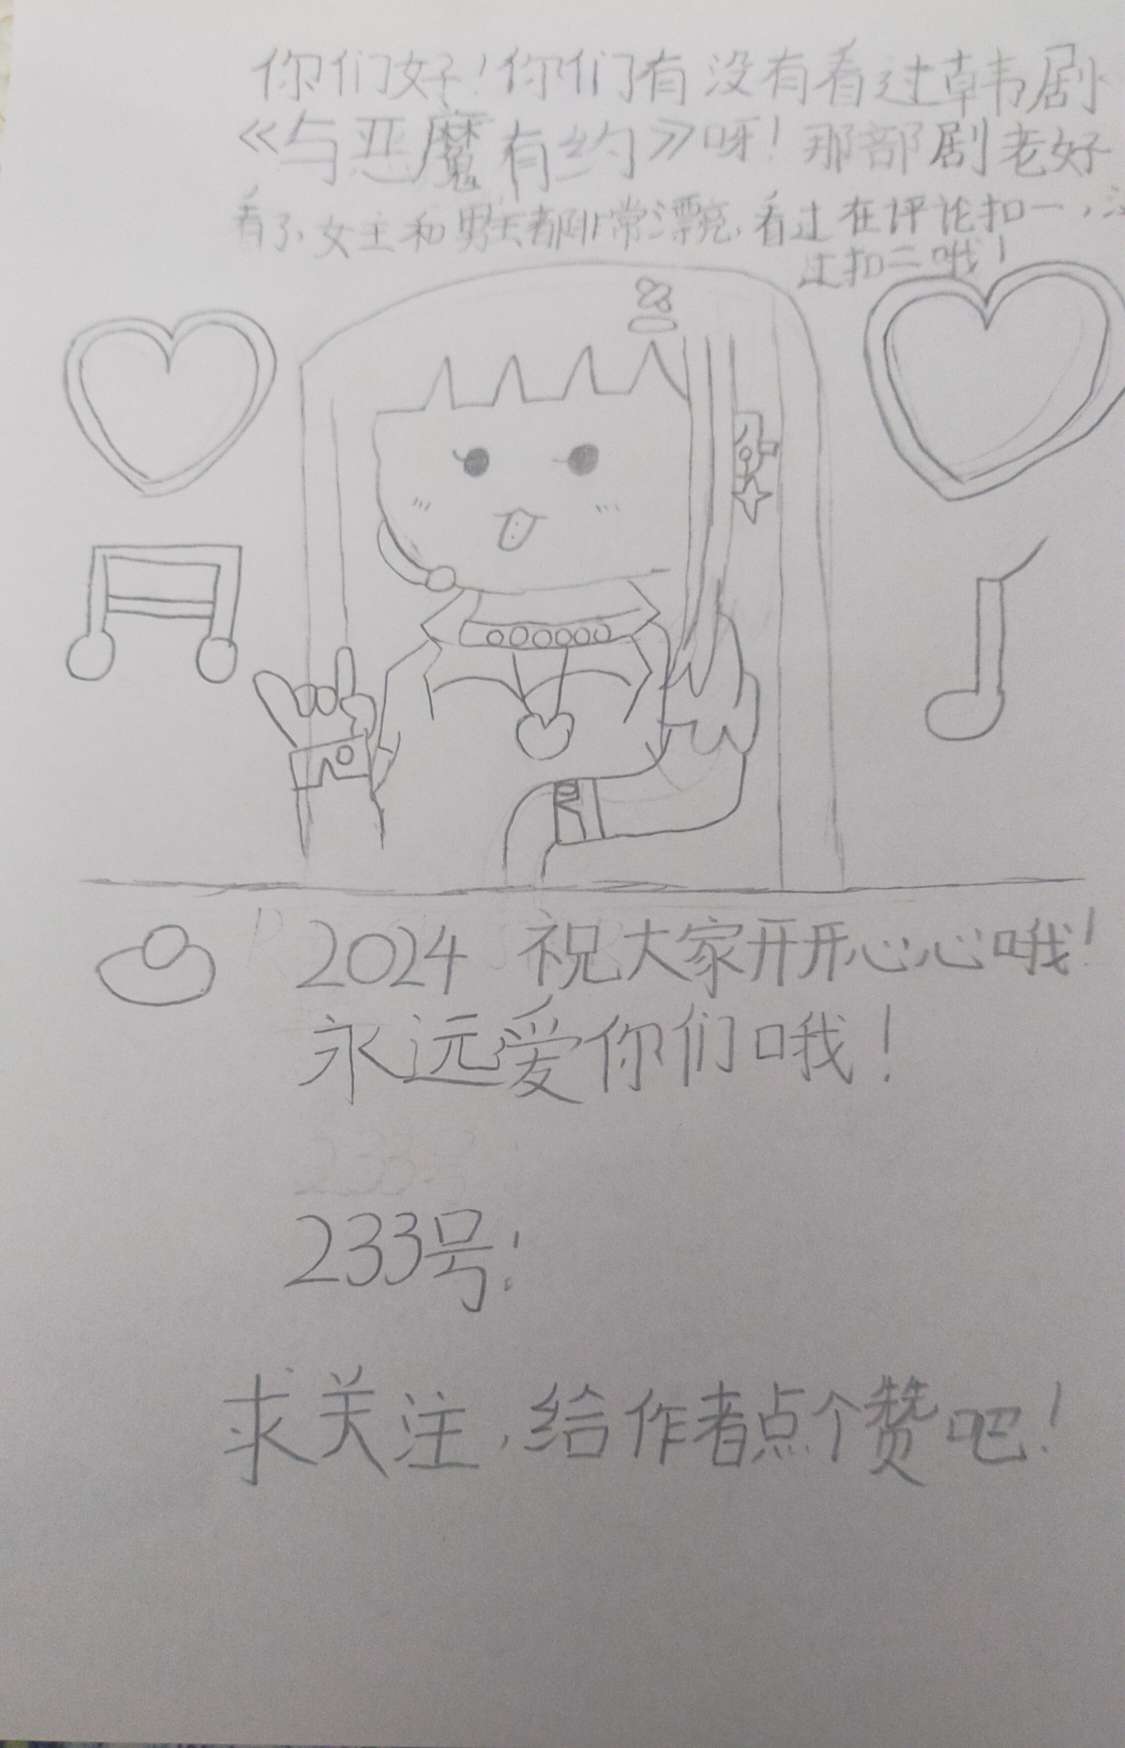 你们好！你们有没有看过韩剧
《与恶魔有约》呀！那部剧老好
看了，女主和男主都非常漂亮，看过在评论扣一，没
过扣二哦！
2024 祝大家开开心心哦！
永远爱你们哦！
233号
233号！
求关注，给作者点个赞吧！